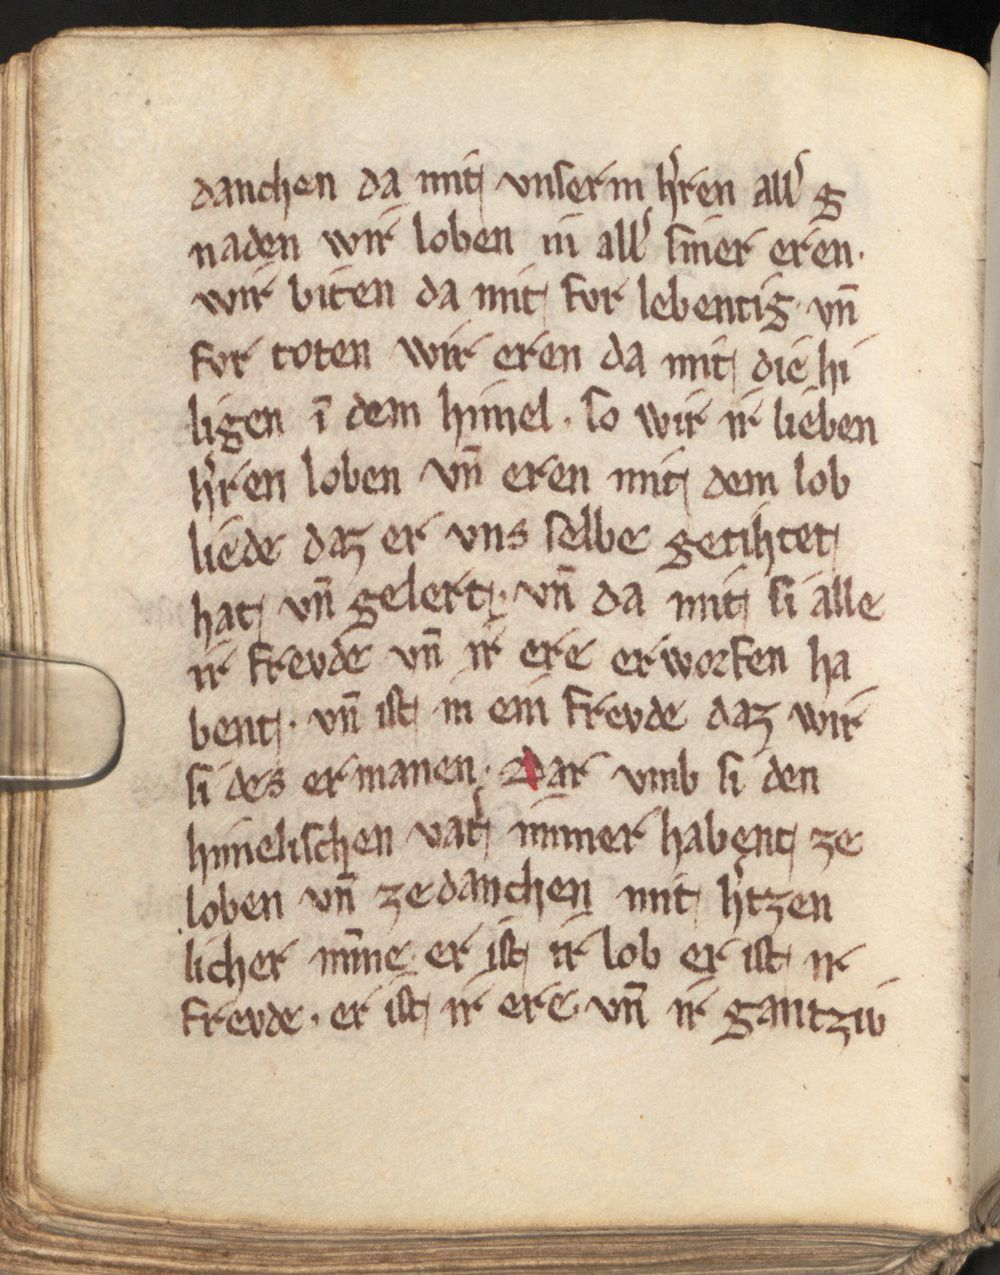 danchen da mit unserm h͛ren all͛ g
naden wir loben in all͛ siner eren·
wir biten da mit for lebentig· vn̄
for toten wir eren da mit die hi
ligen ī dem himel · so wir ir lieben
h͛ren loben vn̄ eren mit dem lob
liede daz er vns selbe getihtet
hat vn̄ gelert· vn̄ da mit si alle
ir frevde vn̄ ir ere erworfen ha
bent · vn̄ ist in ein frevde daz wir
si des ermanen· Dar vmb si den
himelischen vat͛ immer habent ze
loben vn̄ ze danchen mit h͛tzen
licher mīne er ist ir lob er ist ir
frevde · er ist ir ere· vn̄ ir gantziv